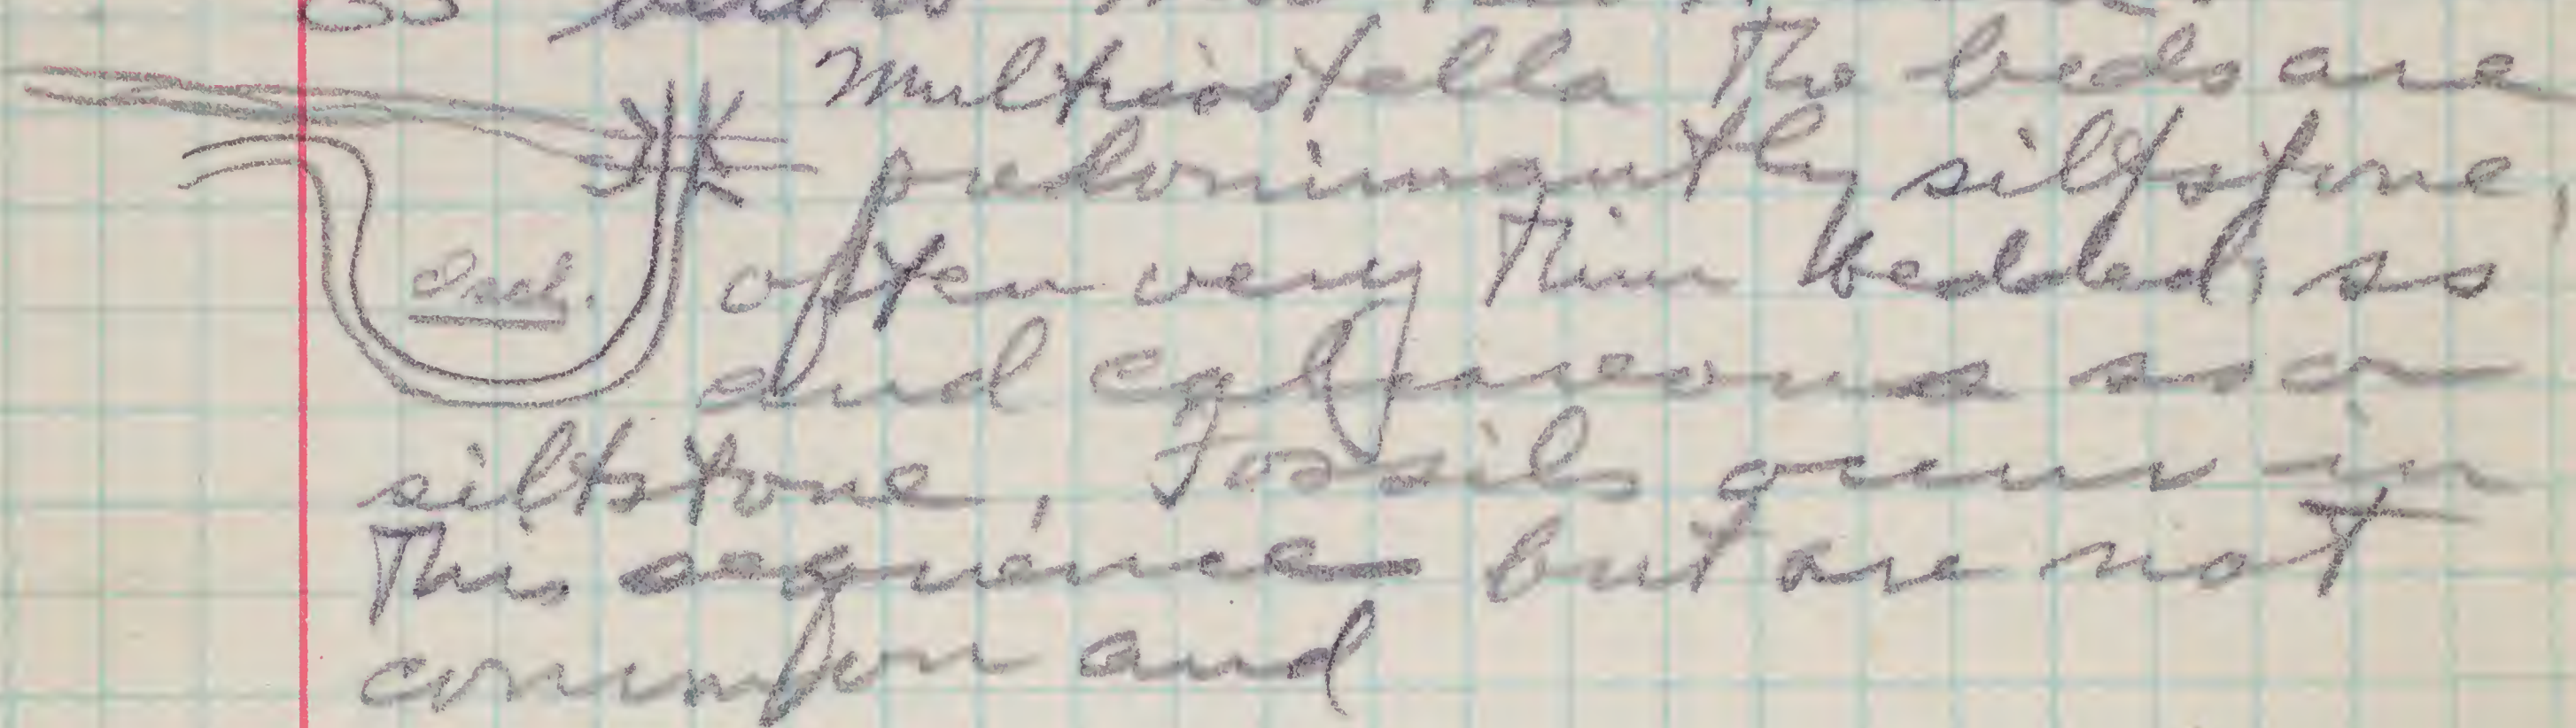 Multicostella The beds are
predominantly siltstone,
often very thin bedded, ss
and calcareous ss or
siltstone, Fossils occur in
This sequence but are not
common and